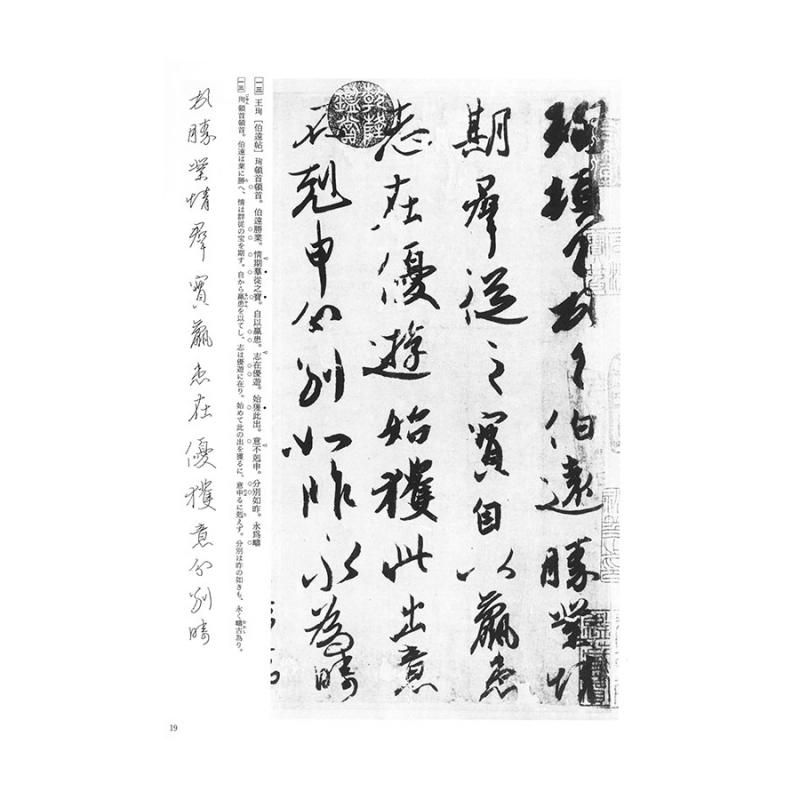 珣頓首頓首伯遠勝業情
期羣從之寶自以羸患
志在優遊始獲此出意
不剋申分別如昨永為疇
乾隆鑑賞
[一三]王珣[伯遠帖]珣頓首頓首。伯遠勝業。情期羣從之寶。自以羸患。志在優遊。始獲此出。意不剋申。分別如昨。永爲疇
[一三]珣頓首頓首。伯遠は業に勝へ、情は群従の宝を期す。自から羸患を以てし、志は優遊に在り。始めて此の出を獲るに、意申るに剋えず。分別は昨の如きも、永く疇古為り。
頓勝業情羣寶羸患在優獲意分別疇
19